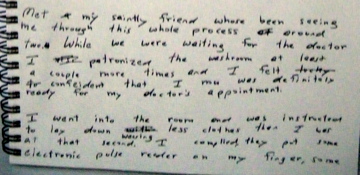 Met my saintly friend whose been seeing
me through this whole process around
two. While we were waiting for the doctor
I patronized the washroom at least
a couple more times and I felt
confident that I was definitely
ready for my doctor's appointment.
I went into the room and was instructed
to lay down wearing less clothes then I was
at that second. I complied they put some
electronic pulse reader on my finger, some